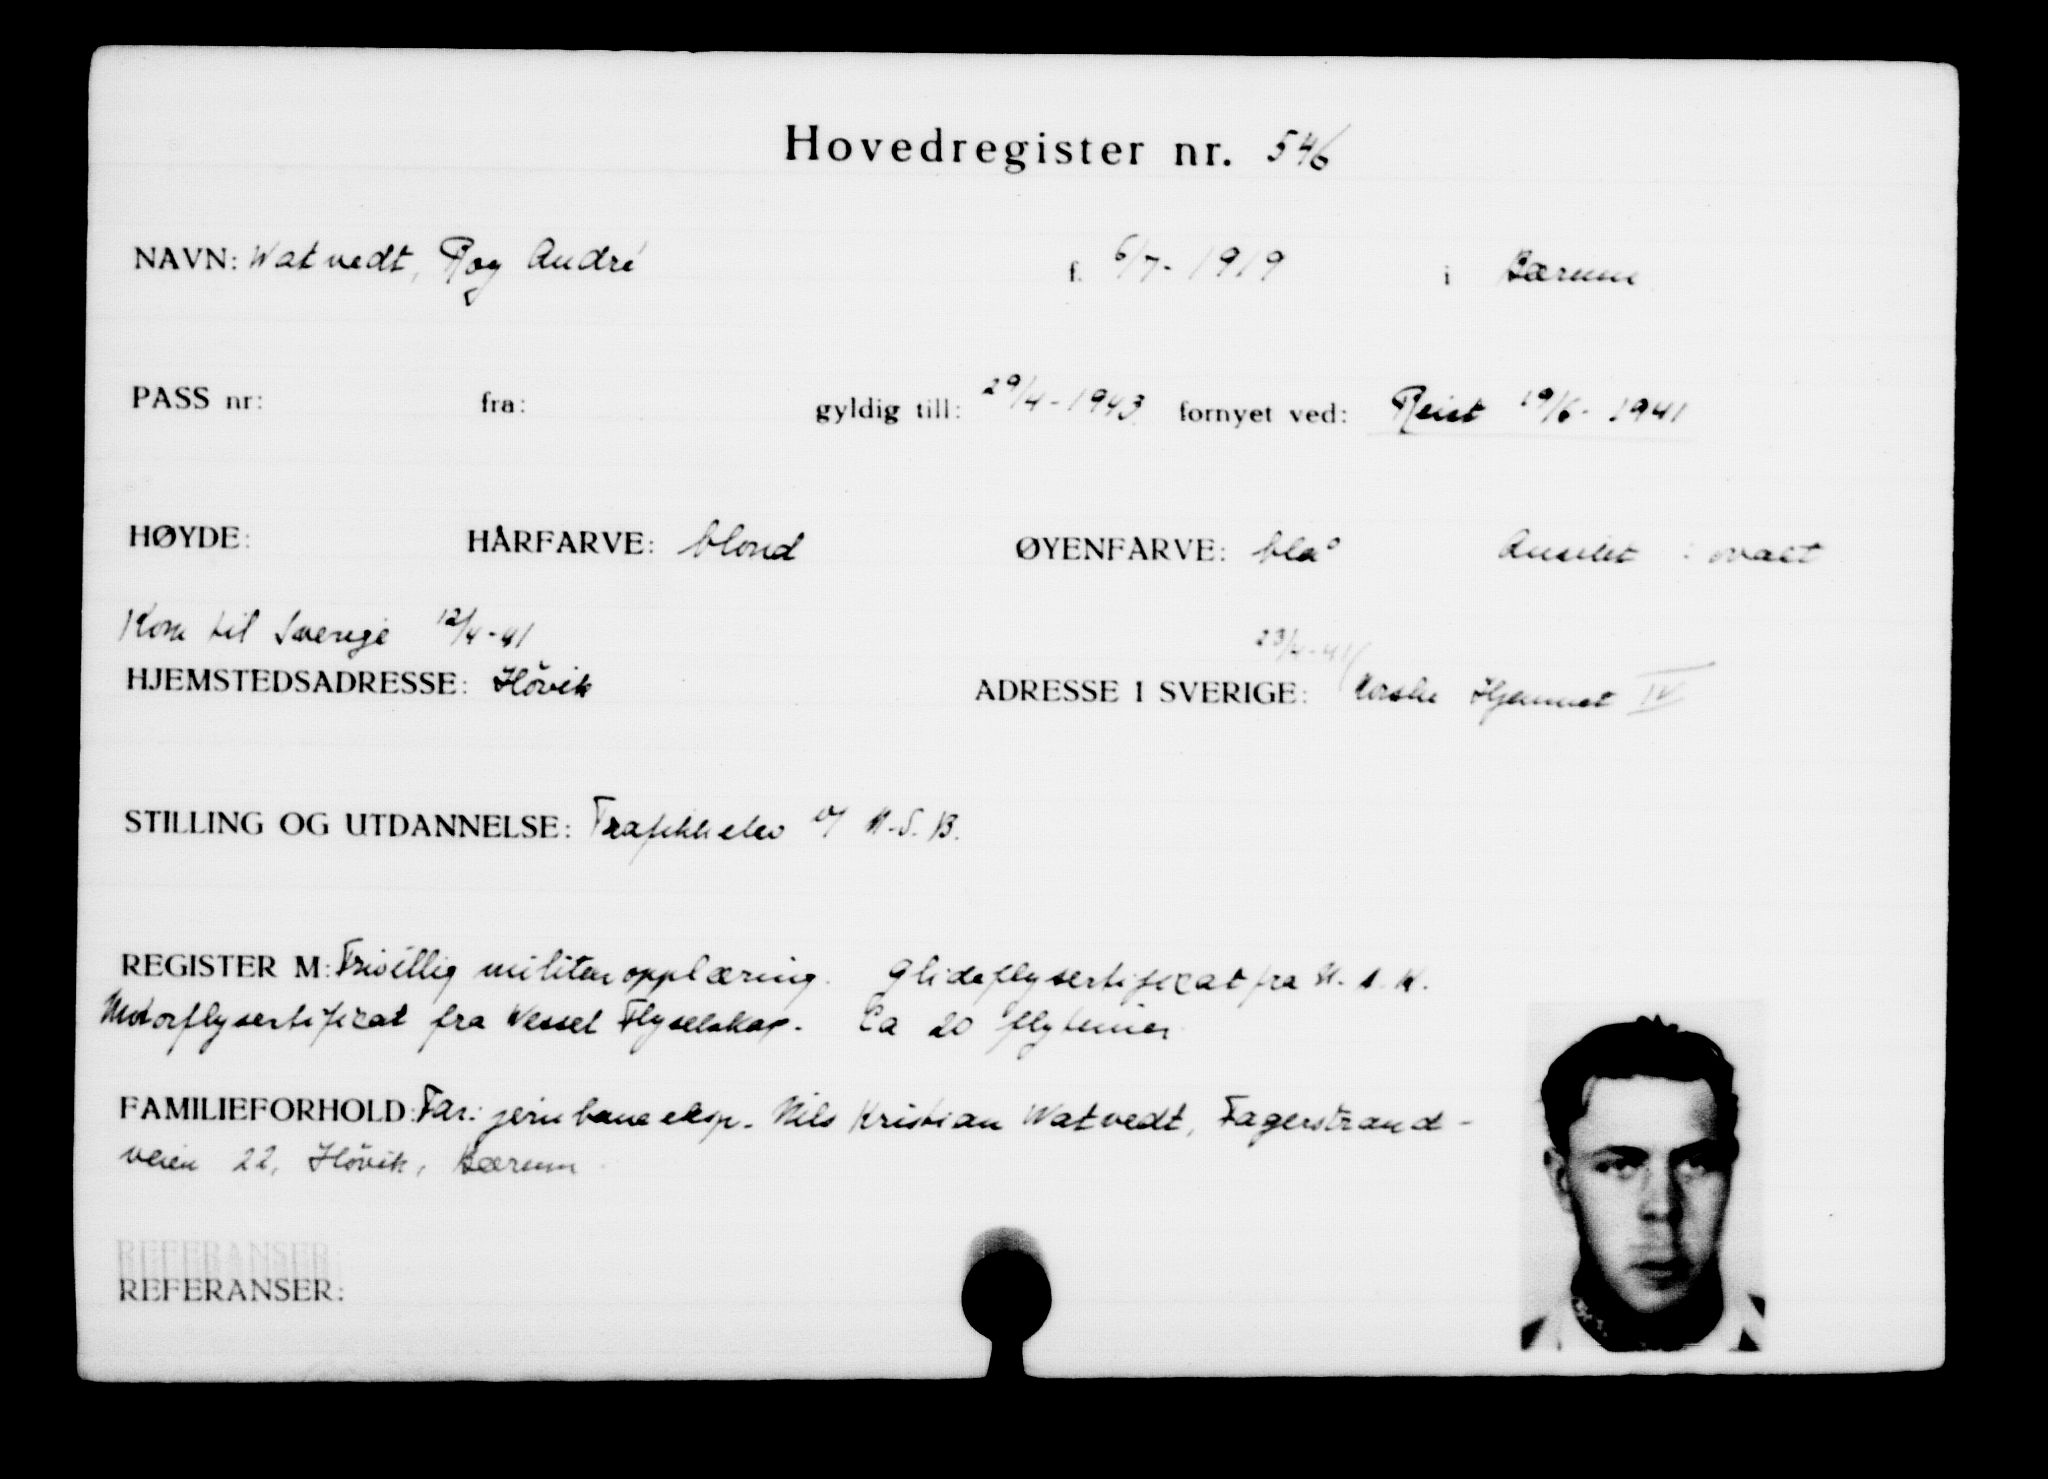 Hovedregister nr. 546
NAVN: Watvedt, Roy André f. 6/7-1919 i Bærum
PASS nr: fra: gyldig till: 29/4-1943 fornyet ved: Reist 19/6-1941
HØYDE: HÅRFARVE: blond ØYENFARVE: blå Ansikt : ovalt
Kom til Sverige 12/4-41
23/4-41
HJEMSTEDSADRESSE: Hövik ADRESSE I SVERIGE: Norske Hjemmet IV
STILLING OG UTDANNELSE: Trafikkelev v/ N.S.B.
REGISTER M: Frivillig militæropplæring. Glideflysertifikat fra N.A.K.
Motorflysertifikat fra Wessel Flyselskap. Ca 20 flytimer
FAMILIEFORHOLD: Far: jernbaneeksp. Nils Kristian Watvedt, Fagerstrand-
veien 22, Hövik, Bærum
REFERANSER:
REFERANSER: